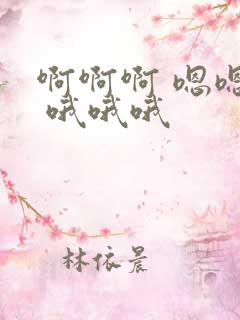 啊啊啊 嗯嗯
哦哦哦
林依晨